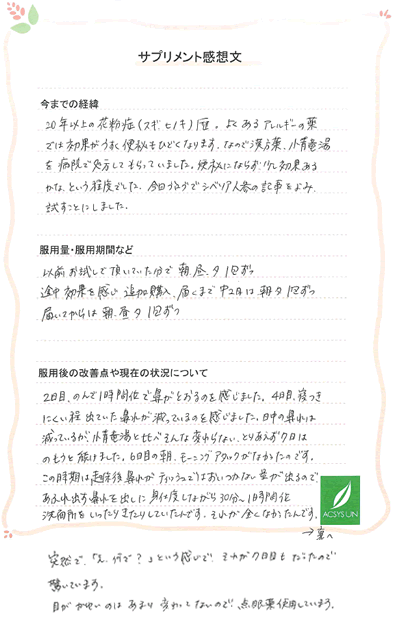 サプリメント感想文
今までの経緯
20年以上の花粉症(スギ・ヒノキ)歴。よくあるアレルギーの薬
では効果がうすく便秘もひどくなります。なので漢方薬、小青竜湯
を病院で処方してもらっていました。便秘にならず少し効果ある
かな、という程度でした。今回シベリア人参の記事をよみ、
試すことにしました。
服用量・服用期間など
以前お試しで頂いていた分で朝、昼、夕1包ずつ
途中効果を感じ追加購入、届くまで中2日は朝夕1包ずつ
届いてからは朝、昼、夕1包ずつ
服用後の改善点や現在の状況について
2日目、のんで1時間位で鼻がとおるのを感じました。4日目、寝つき
にくい程出ていた鼻水が減っているのを感じました。日中の鼻水は
減っているが、小青竜湯と比べそんな変わらない、とりあえず7日は
のもうと続けました。6日目の朝、モーニングアタックがなかったのです。
この時期は起床後鼻水がティッシュではおいつかない量が出るので
あふれ出す鼻水を出しに身仕度しながら30分〜1時間位
洗面所をいったりきたりしていたんです。それが全くなかったんです。
→裏へ
AGSYSUN
突然で、「え、何で?」という感じで、それが7日目もだったので
驚いています。
目がかゆいのはあまり変わってないので、点眼薬使用しています。